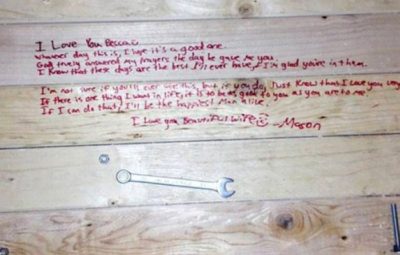 I Love You Beccah
Whatever day this is, I hope it's a good one.
God truely answered my prayers the day he gave me you.
I Know that these days are the best I'll ever have & I'm glad you're in them.
I'm not sure if you'll ever see this, but if you do, Just Know that I Love you very
If there is one thing I want in life, it is to be as good to you as you are to me.
If I can do that, I'll be the happiest Man alive.
I Love you Beautiful Wife ☺ -Mason